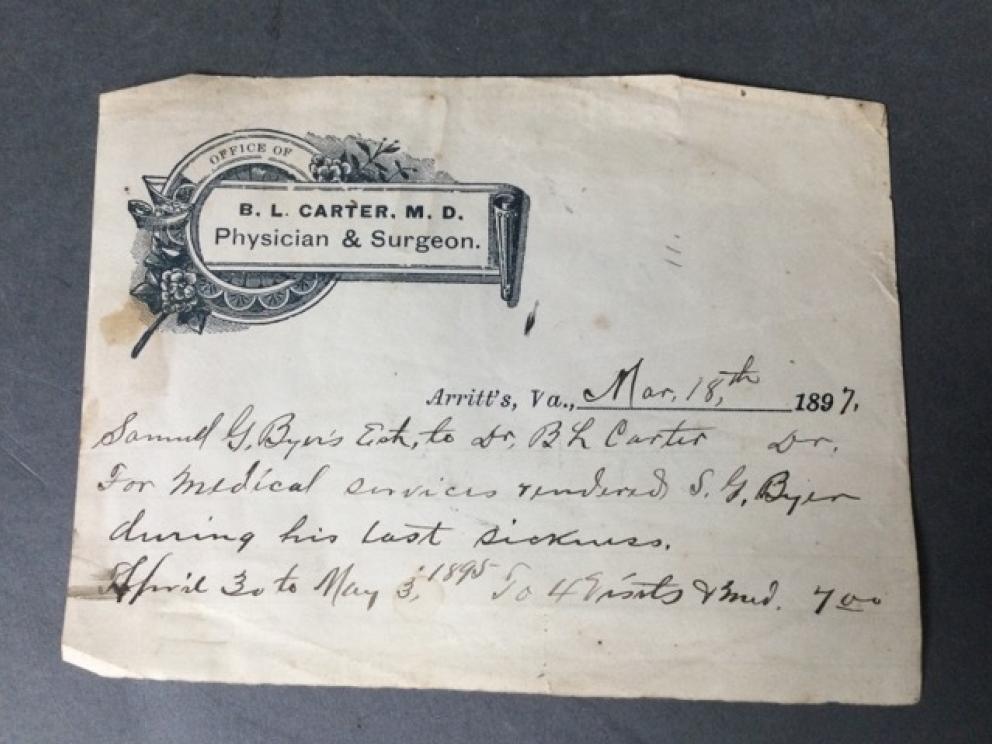 OFFICE OF
B. L. CARTER, M. D.
Physician & Surgeon.
Arritt's, Va., Mar. 18,th 1897.
Samuel G. Byer's Est, to Dr, B L Carter Dr.
For Medical services rendered S. G. Byer
during his last sickness.
April 30 to May 3, 1895 To 4 Visits & Med. 7 00